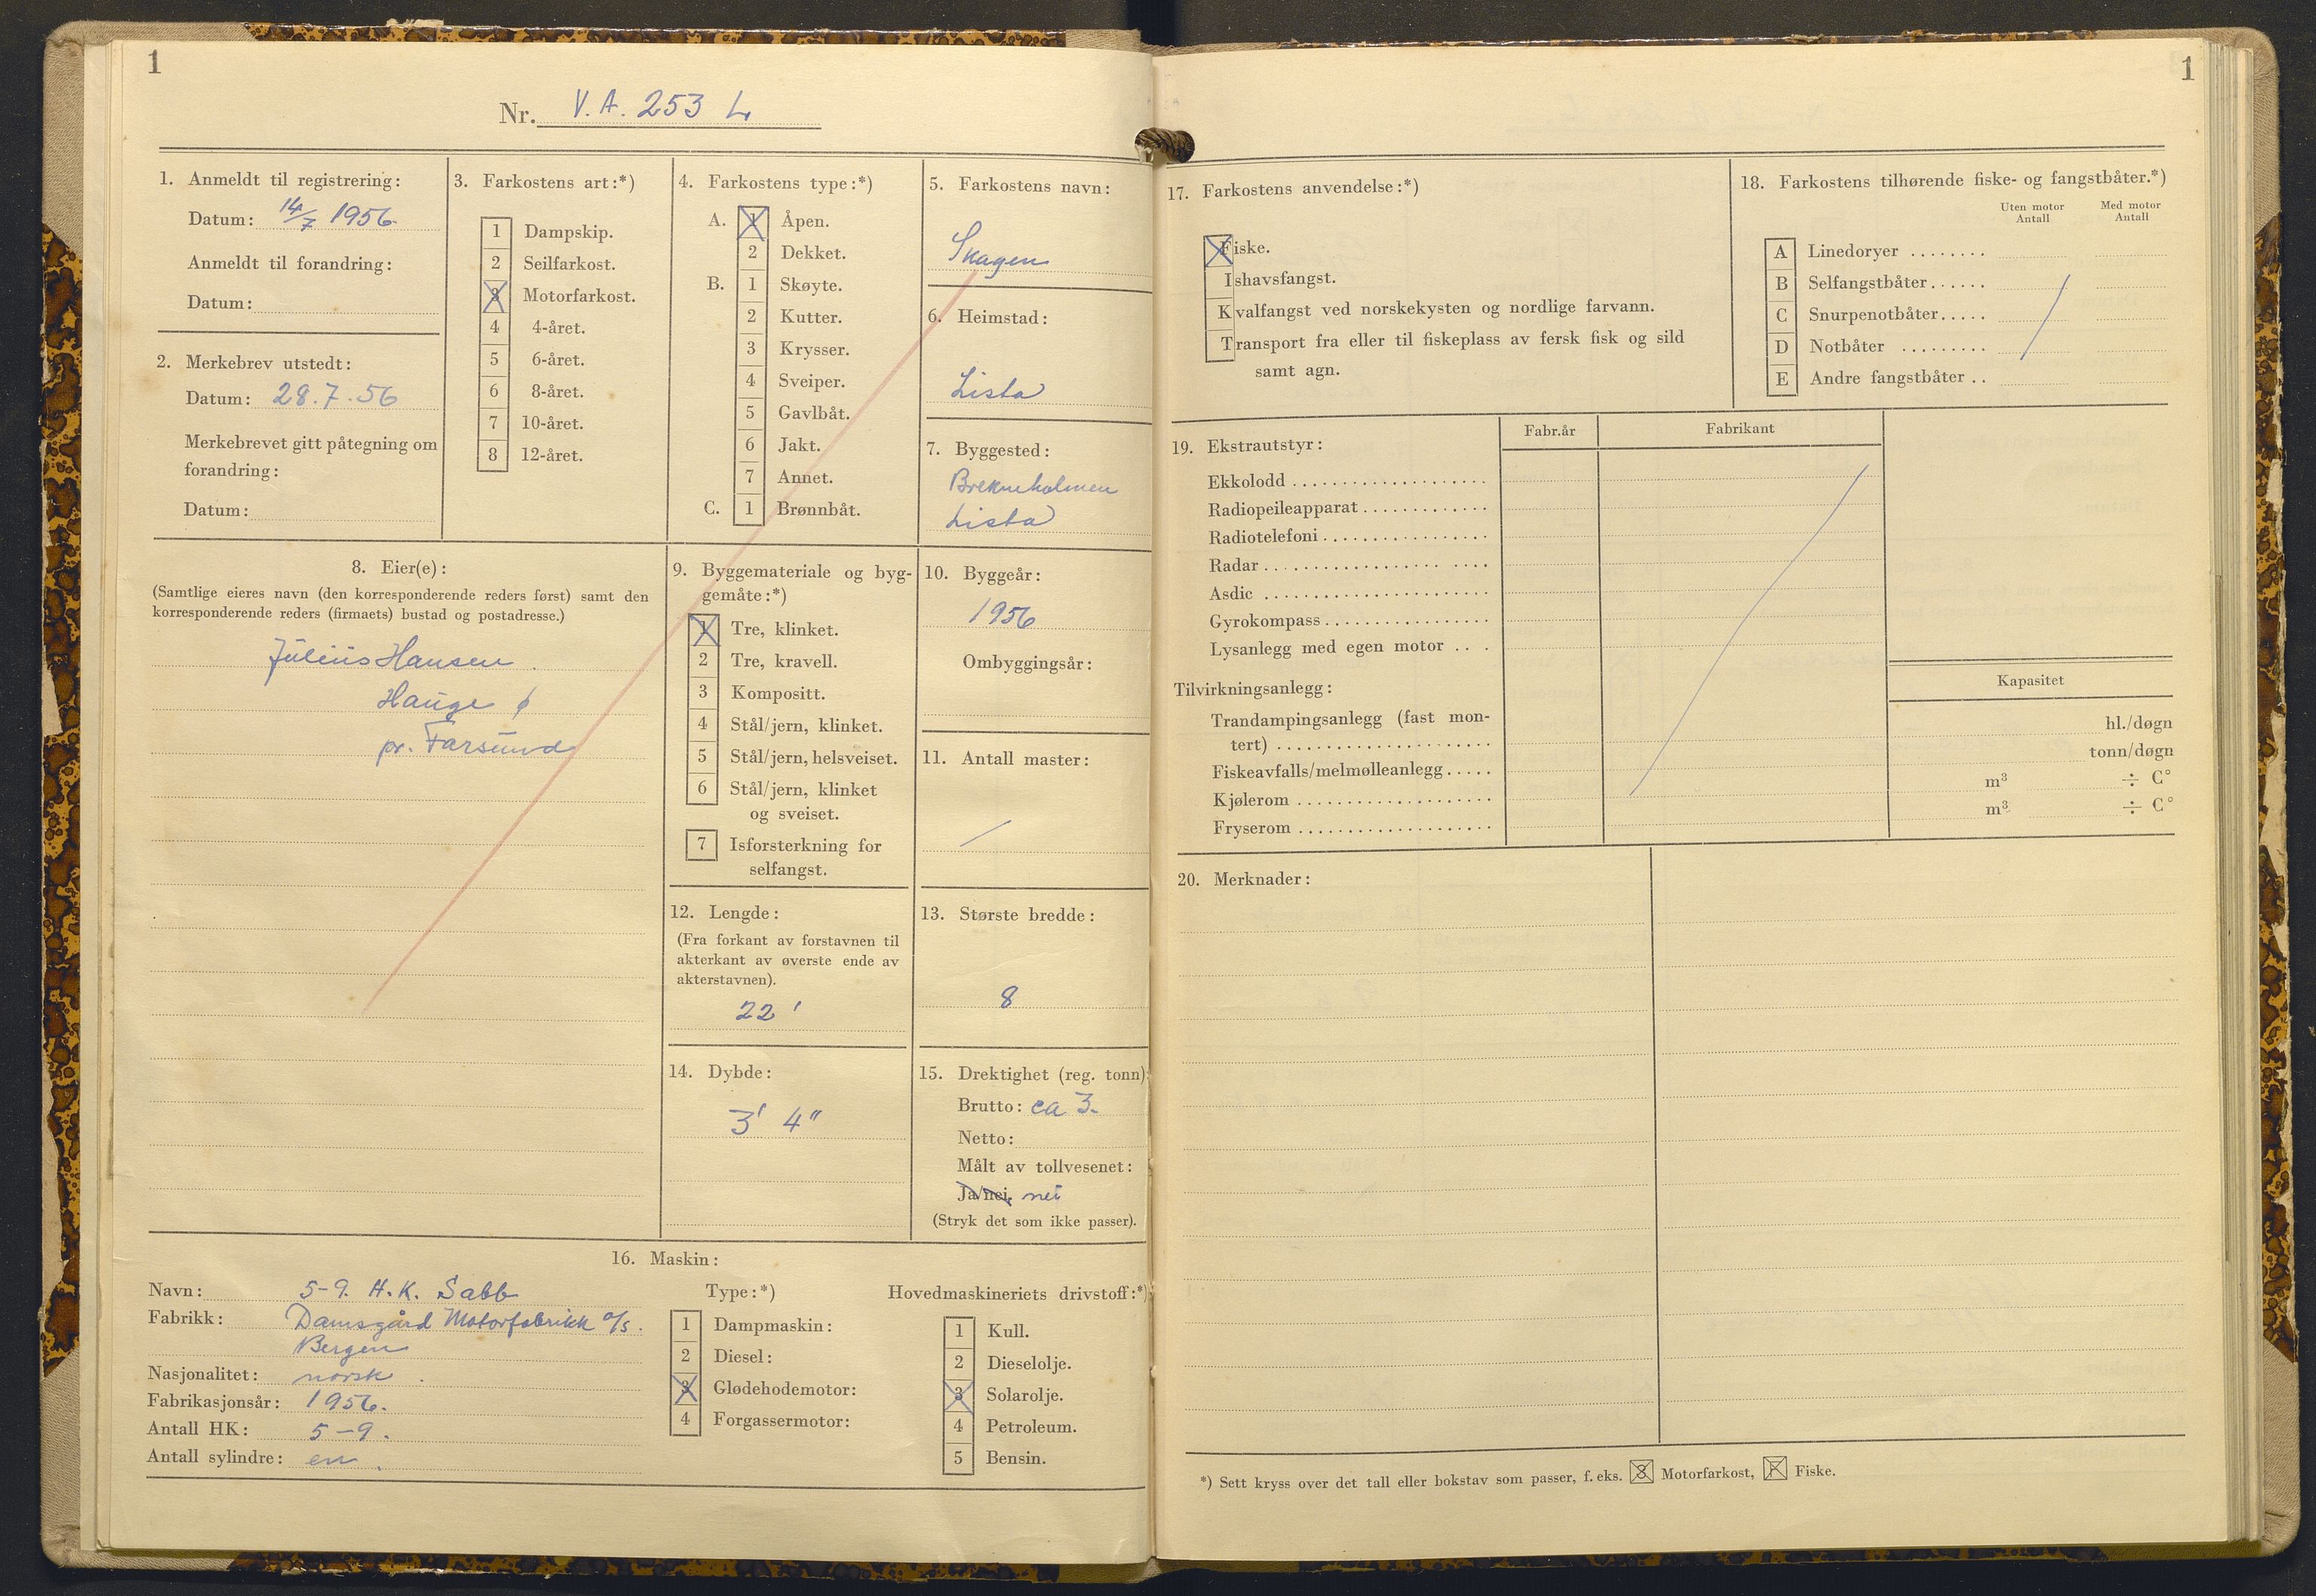 1
Nr. V. A. 253 L
1. Anmeldt til registrering:
Datum: 14/7 1956.
Anmeldt til forandring:
Datum:
2. Merkebrev utstedt:
Datum: 28.7.56
Merkebrevet gitt påtegning om
forandring:
Datum:
3. Farkostens art:*)
1 Dampskip.
2 Seilfarkost.
3 Motorfarkost.
4 4-året.
5 6-året.
6 8-året.
7 10-året.
8 12-året.
4. Farkostens type:*)
A. 1 Åpen.
2 Dekket.
B. 1 Skøyte.
2 Kutter.
3 Krysser.
4 Sveiper.
5 Gavlbåt.
6 Jakt.
7 Annet.
C. 1 Brønnbåt.
5. Farkostens navn:
Skagen
6. Heimstad:
Lista
7. Byggested:
Brekneholmen
Lista
8. Eier(e):
(Samtlige eieres navn (den korresponderende reders først) samt den
korresponderende reders (firmaets) bustad og postadresse.)
Julius Hansen.
Hauge
pr. Farsund
9. Byggemateriale og byg-
gemåte:*)
1 Tre, klinket.
2 Tre, kravell.
3 Kompositt.
4 Stål/jern, klinket.
5 Stål/jern, helsveiset.
6 Stål/jern, klinket
og sveiset.
7 Isforsterkning for
selfangst.
10. Byggeår:
1956
Ombyggingsår:
11. Antall master:
/
12. Lengde:
(Fra forkant av forstavnen til
akterkant av øverste ende av
akterstavnen).
22'
13. Største bredde:
8
14. Dybde:
3' 4"
15. Drektighet (reg. tonn):
Brutto: ca 3.
Netto:
Målt av tollvesenet:
Ja/nei. nei
(Stryk det som ikke passer).
16. Maskin:
Navn: 5-9. H.K. Sabb
Fabrikk: Damsgård Motorfabrikk a/s.
Bergen
Nasjonalitet: norsk.
Fabrikasjonsår: 1956.
Antall HK: 5-9.
Antall sylindre: en.
Type:*)
1 Dampmaskin:
2 Diesel:
3 Glødehodemotor:
4 Forgassermotor:
Hovedmaskineriets drivstoff:*)
1 Kull.
2 Dieselolje.
3 Solarolje.
4 Petroleum.
5 Bensin.
1
17. Farkostens anvendelse:*)
Fiske.
Ishavsfangst.
Kvalfangst ved norskekysten og nordlige farvann.
Transport fra eller til fiskeplass av fersk fisk og sild
samt agn.
18. Farkostens tilhørende fiske- og fangstbåter.*)
Uten motor Med motor
Antall Antall
A Linedoryer ........
B Selfangstbåter......
C Snurpenotbåter.....
D Notbåter .........
E Andre fangstbåter ..
19. Ekstrautstyr:
Fabr.år Fabrikant
Ekkolodd ....................
Radiopeileapparat .............
Radiotelefoni .................
Radar .......................
Asdic .......................
Gyrokompass .................
Lysanlegg med egen motor ...
Tilvirkningsanlegg:
Kapasitet
Trandampingsanlegg (fast mon-
tert) ......................
hl./døgn
Fiskeavfalls/melmølleanlegg.....
tonn/døgn
Kjølerom ....................
m³ ÷ C°
Fryserom ....................
m³ ÷ C°
20. Merknader:
*) Sett kryss over det tall eller bokstav som passer, f. eks. 3 Motorfarkost, F Fiske.